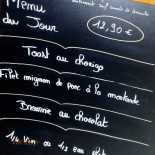 Menu
du Jour
12,90 €
Toast au chorizo
Filet mignon de porc à la moutarde
Brownie au chocolat
1/4 Vin ou 1/2 eau